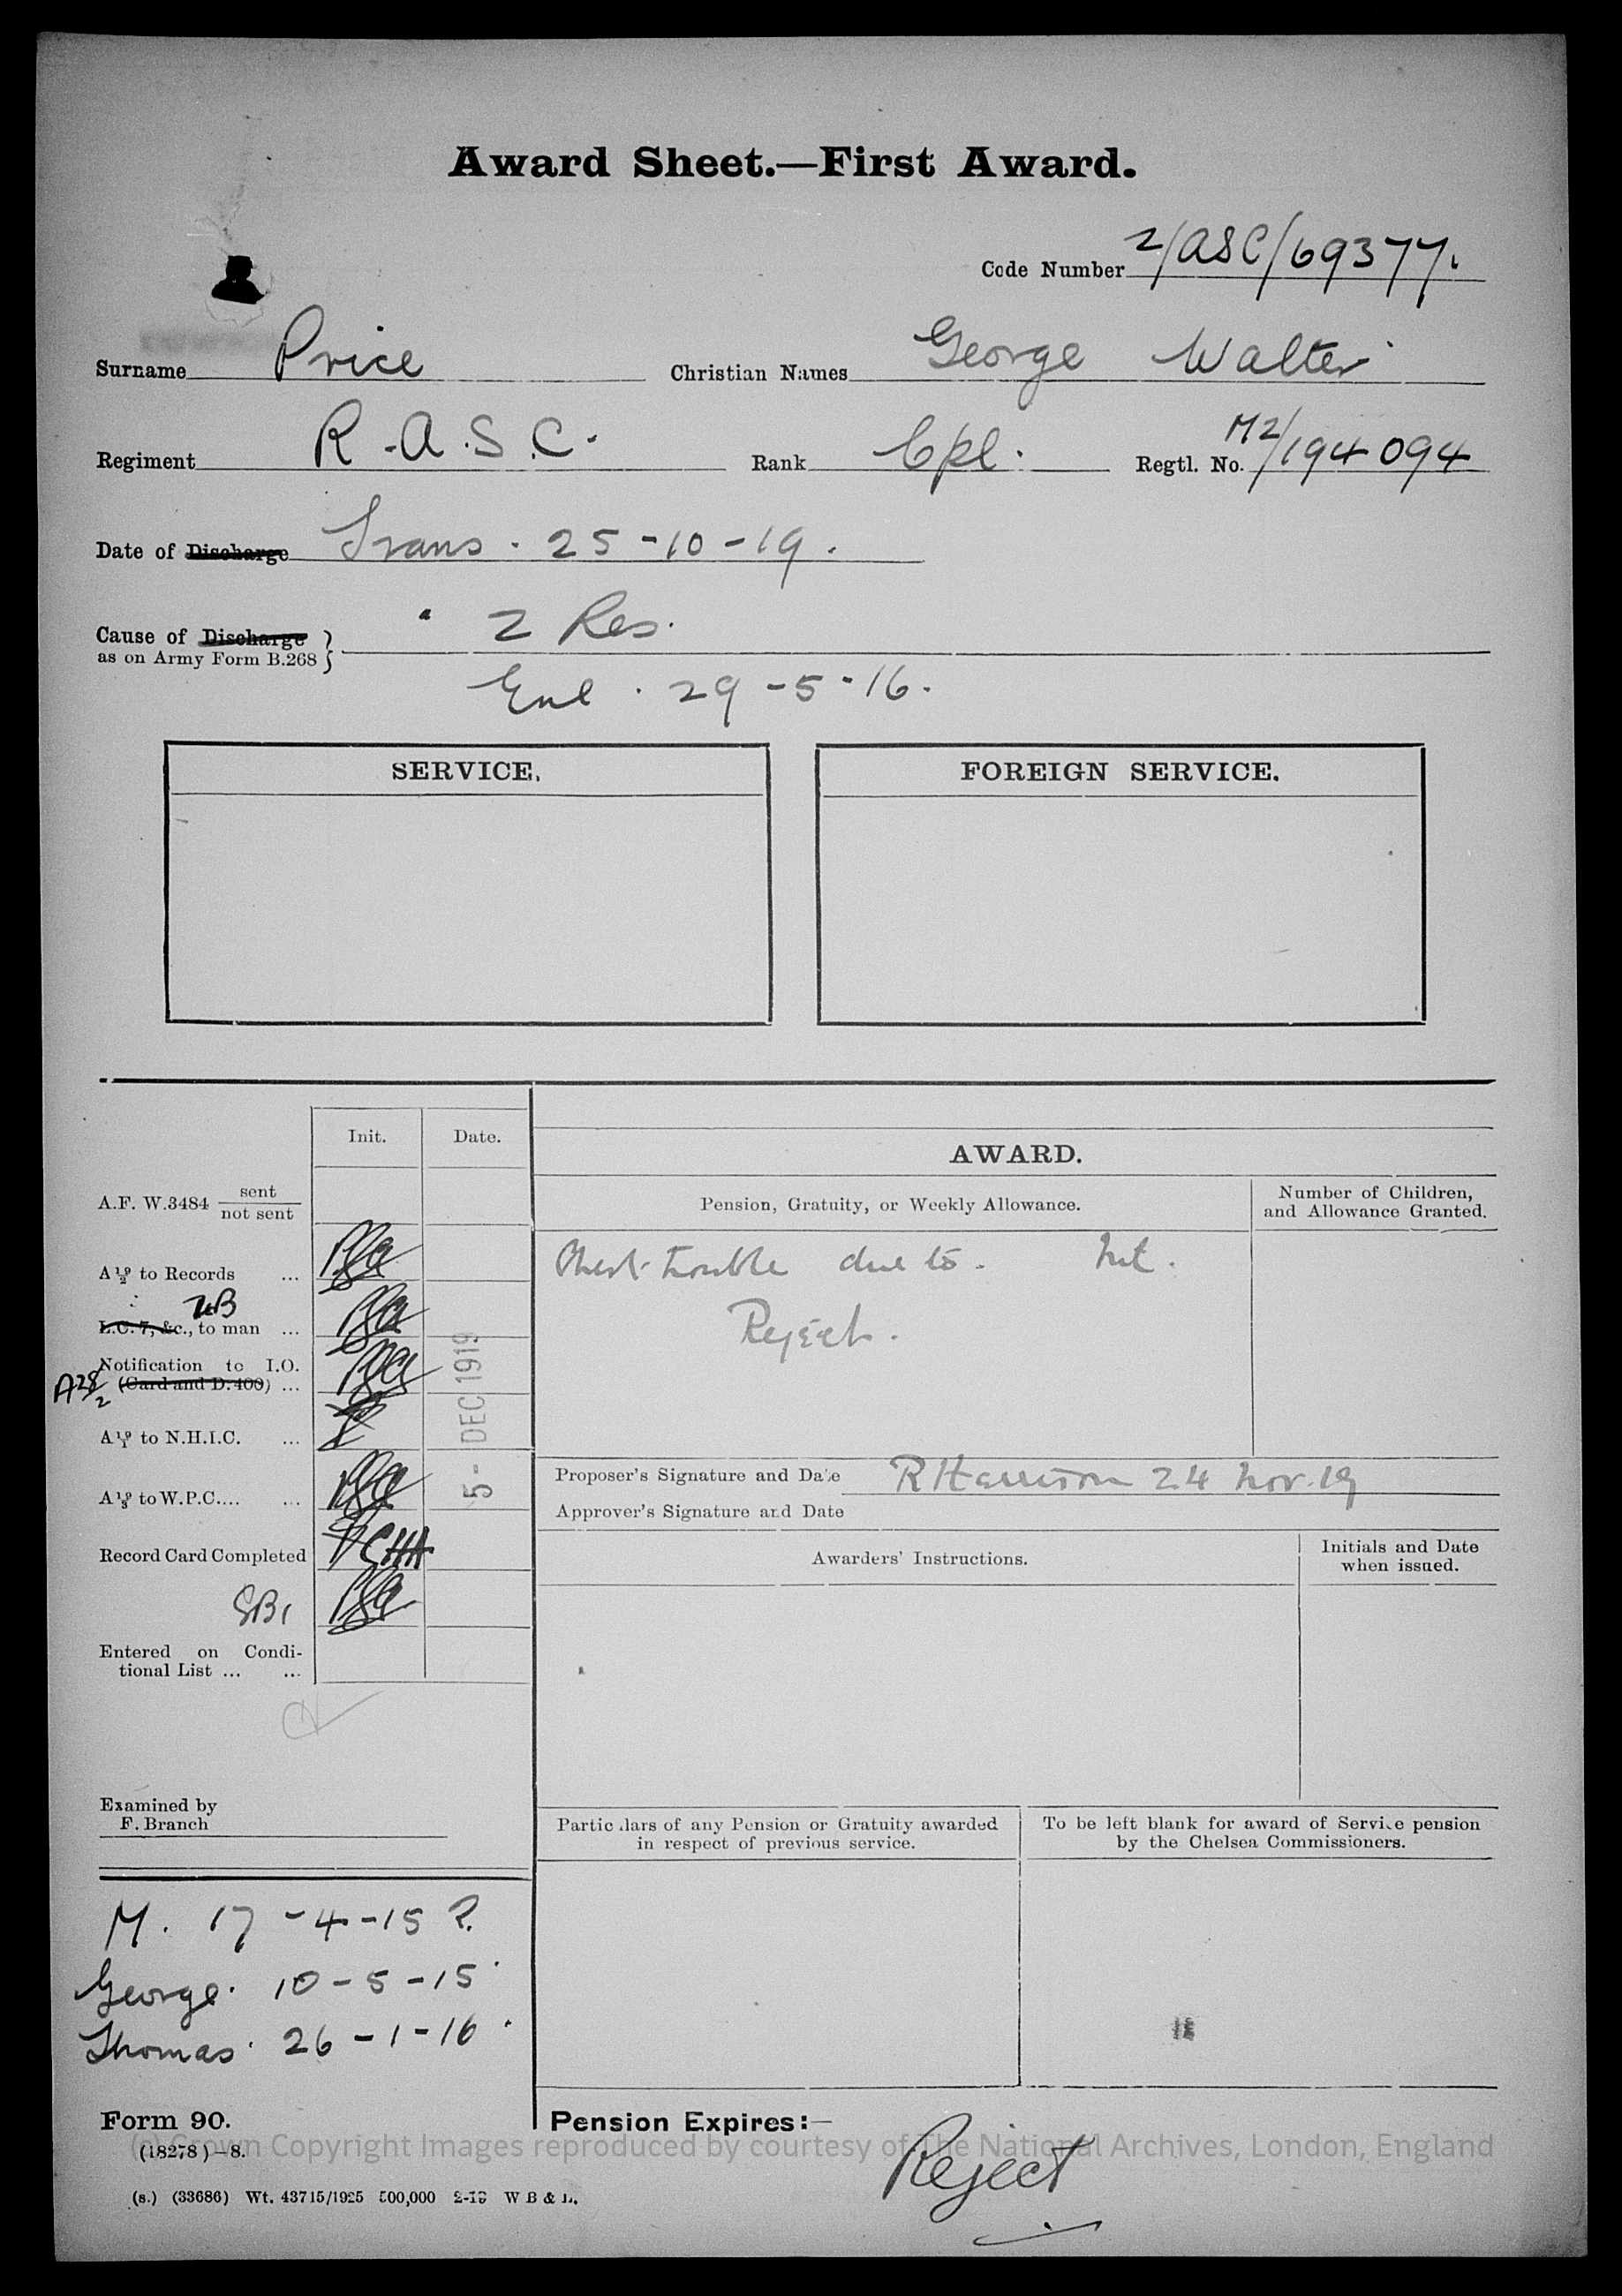 Award Sheet.—First Award.
Code Number 2/ASC/69377.
Surname Price Christian Names George Walter
Regiment R.A.S.C. Rank Cpl. Regtl. No. M2/194094
Date of Discharge Trans. 25-10-19.
Cause of Discharge " Z Res.
as on Army Form B.268
Enl. 29-5-16.
SERVICE. FOREIGN SERVICE.
Init. Date.
AWARD.
A.F. W.3484 sent
not sent
Pension, Gratuity, or Weekly Allowance.
Number of Children,
and Allowance Granted.
A 19/2 to Records ...
Chest trouble due to.
Reject.
L.C. 7, &c., to man ...
Notification to I.O.
A28/2 (Card and D.400) ...
5 - DEC 1919
A 19/1 to N.H.I.C. ...
A 19/3 to W.P.C.... ...
Proposer's Signature and Date R Harrison 24 Nov. 19
Approver's Signature and Date
Record Card Completed CHA
Awarders' Instructions.
Initials and Date
when issued.
SB1
Entered on Condi-
tional List ... ...
Examined by
F. Branch
Particulars of any Pension or Gratuity awarded
in respect of previous service.
To be left blank for award of Service pension
by the Chelsea Commissioners.
M. 17-4-15 ?.
George. 10-5-15.
Thomas. 26-1-16.
Form 90.
Pension Expires:—
Reject
(c) Crown Copyright Images reproduced by courtesy of The National Archives, London, England
(18278)—8.
(s.) (33686) Wt. 43715/1925 500,000 2-19 W B & L.